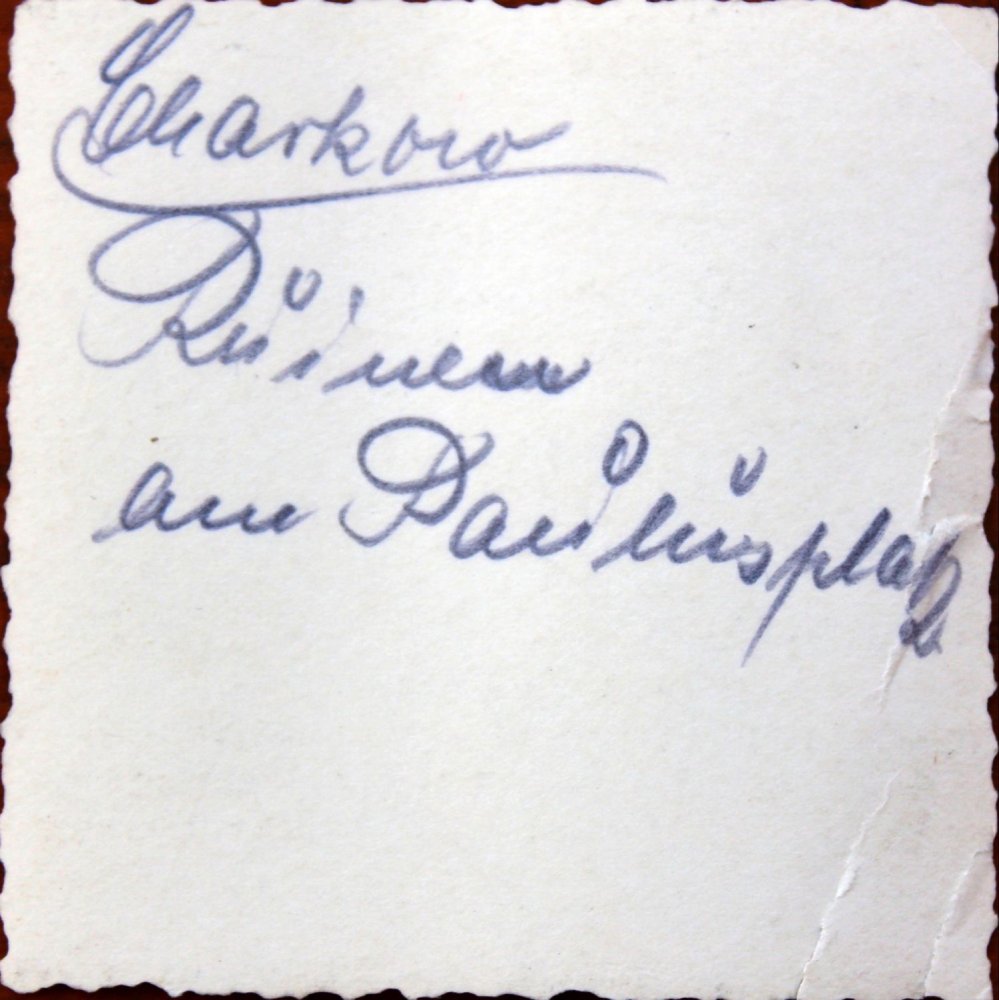 Charkow
Ruinen
am Paulusplatz